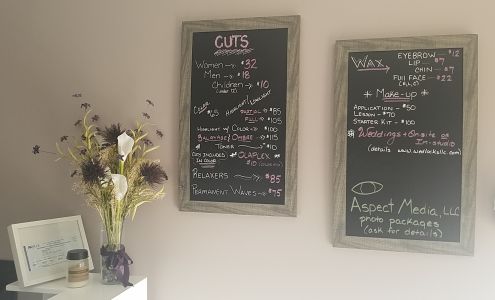 CUTS
Women → $32
Men → $18
Children → $10
(under 12)
COLOR → $65
HIGHLIGHT/LOWLIGHT
PARTIAL → $85
FULL → $105
HIGHLIGHT w/ COLOR → $100
BALAYAGE/OMBRE → $115
TONER → $10
CUTS INCLUDED IN COLOR
* OLAPLEX *
RELAXERS → $85
PERMANENT WAVES → $75
WAX
EYEBROW — $12
LIP $7
CHIN — $7
FULL FACE — $22
(E,L,C)
* Make-up *
APPLICATION — $50
LESSON — $70
STARTER KIT — $100
* Weddings + Onsite or In-studio
(details
Aspect Media, LLC
photo packages
(ask for details)